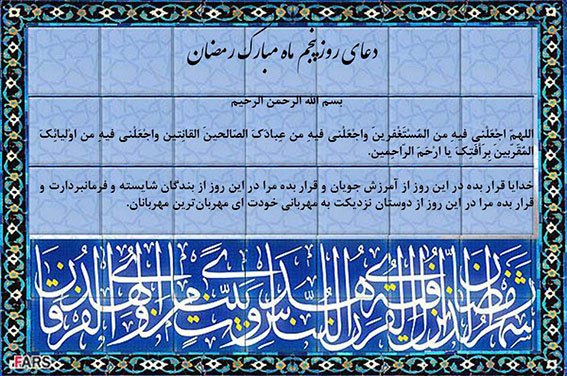 دعای روز پنجم ماه مبارک رمضان
بسم الله الرحمن الرحیم
اللهمّ اجْعَلْنی فیهِ من المُسْتَغْفرینَ واجْعَلْنی فیهِ من عِبادَکَ الصّالحینَ القانِتین واجْعَلْنی فیهِ من اوْلیائِکَ
المُقَرّبینَ بِرَأفَتِکَ یا ارْحَمَ الرّاحِمین.
خدایا قرار بده در این روز از آمرزش جویان و قرار بده مرا در این روز از بندگان شایسته و فرمانبردارت و
قرار بده مرا در این روز از دوستان نزدیکت به مهربانی خودت ای مهربان‌ترین مهربانان.
شهر رمضان الذی انزل فیه القرآن هدی للناس و بینات من الهدی و الفرقان
FARS